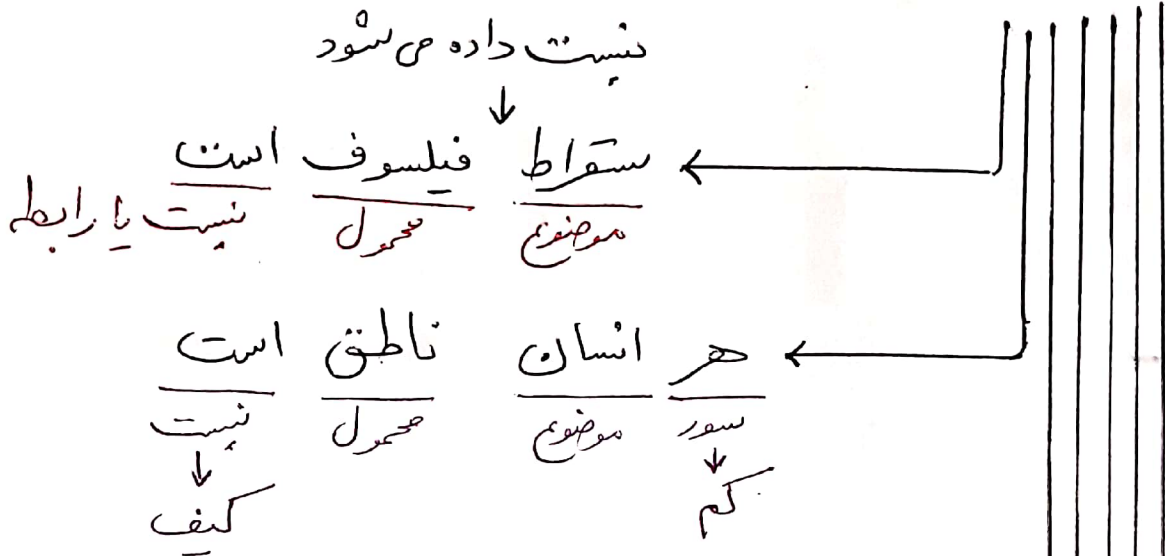 نسبت داده می‌شود
سقراط فیلسوف است
موضوع محمول نسبت یا رابطه
هر انسان ناطق است
سور موضوع محمول نسبت
کم کیف